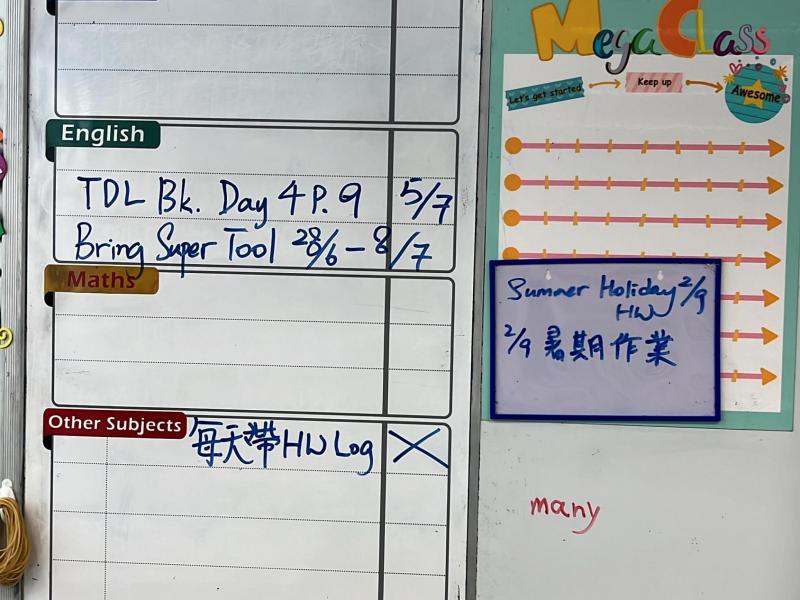 English
TDL Bk. Day 4 P. 9 5/7
Bring Super Tool 28/6 - 8/7
Maths
Other Subjects
每天帶HW Log
Mega Class
Let's get started
Keep up
Awesome
Summer Holiday 2/9
HW
2/9 暑期作業
many